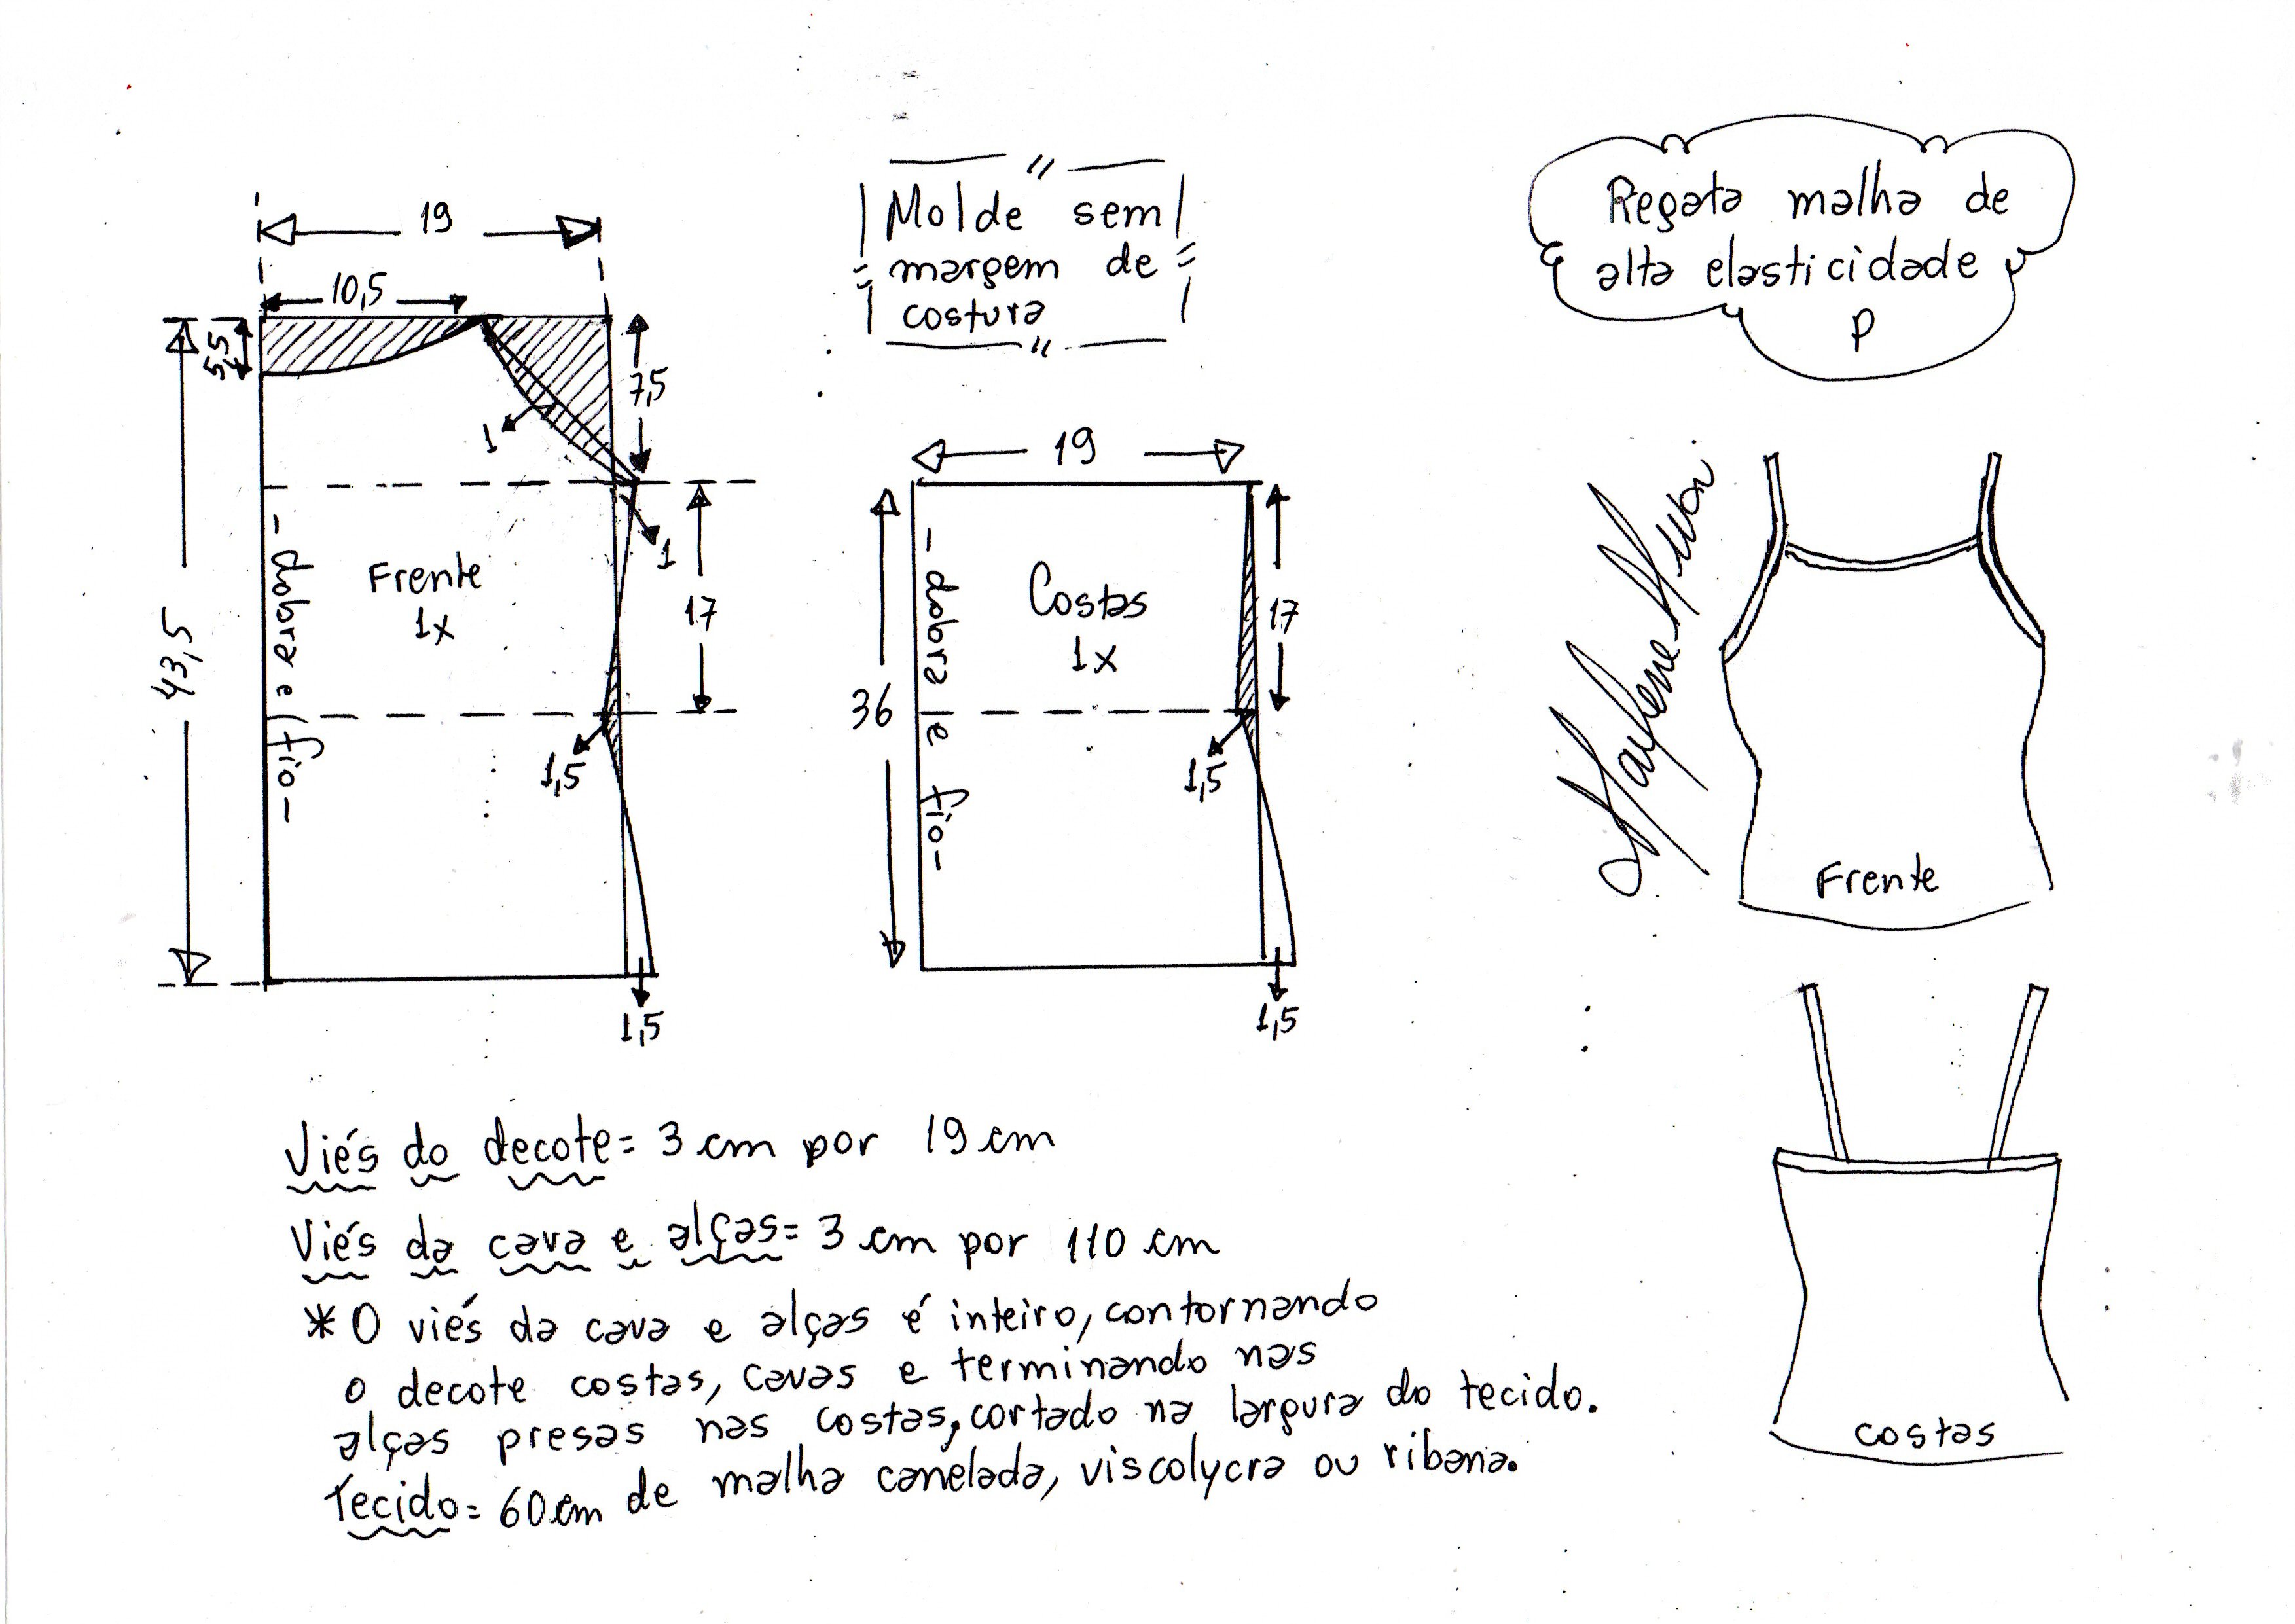 Regata malha de
alta elasticidade
P
Molde sem
margem de
costura
19
10,5
5,5
7,5
1
1
43,5
- dobra e fio -
Frente
1x
17
1,5
1,5
19
36
- dobra e fio -
Costas
1x
17
1,5
1,5
Frente
costas
Viés do decote= 3 cm por 19 cm
Viés da cava e alças= 3 cm por 110 cm
*O viés da cava e alças é inteiro, contornando
o decote costas, cavas e terminando nas
alças presas nas costas, cortado na largura do tecido.
Tecido= 60 cm de malha canelada, viscolycra ou ribana.